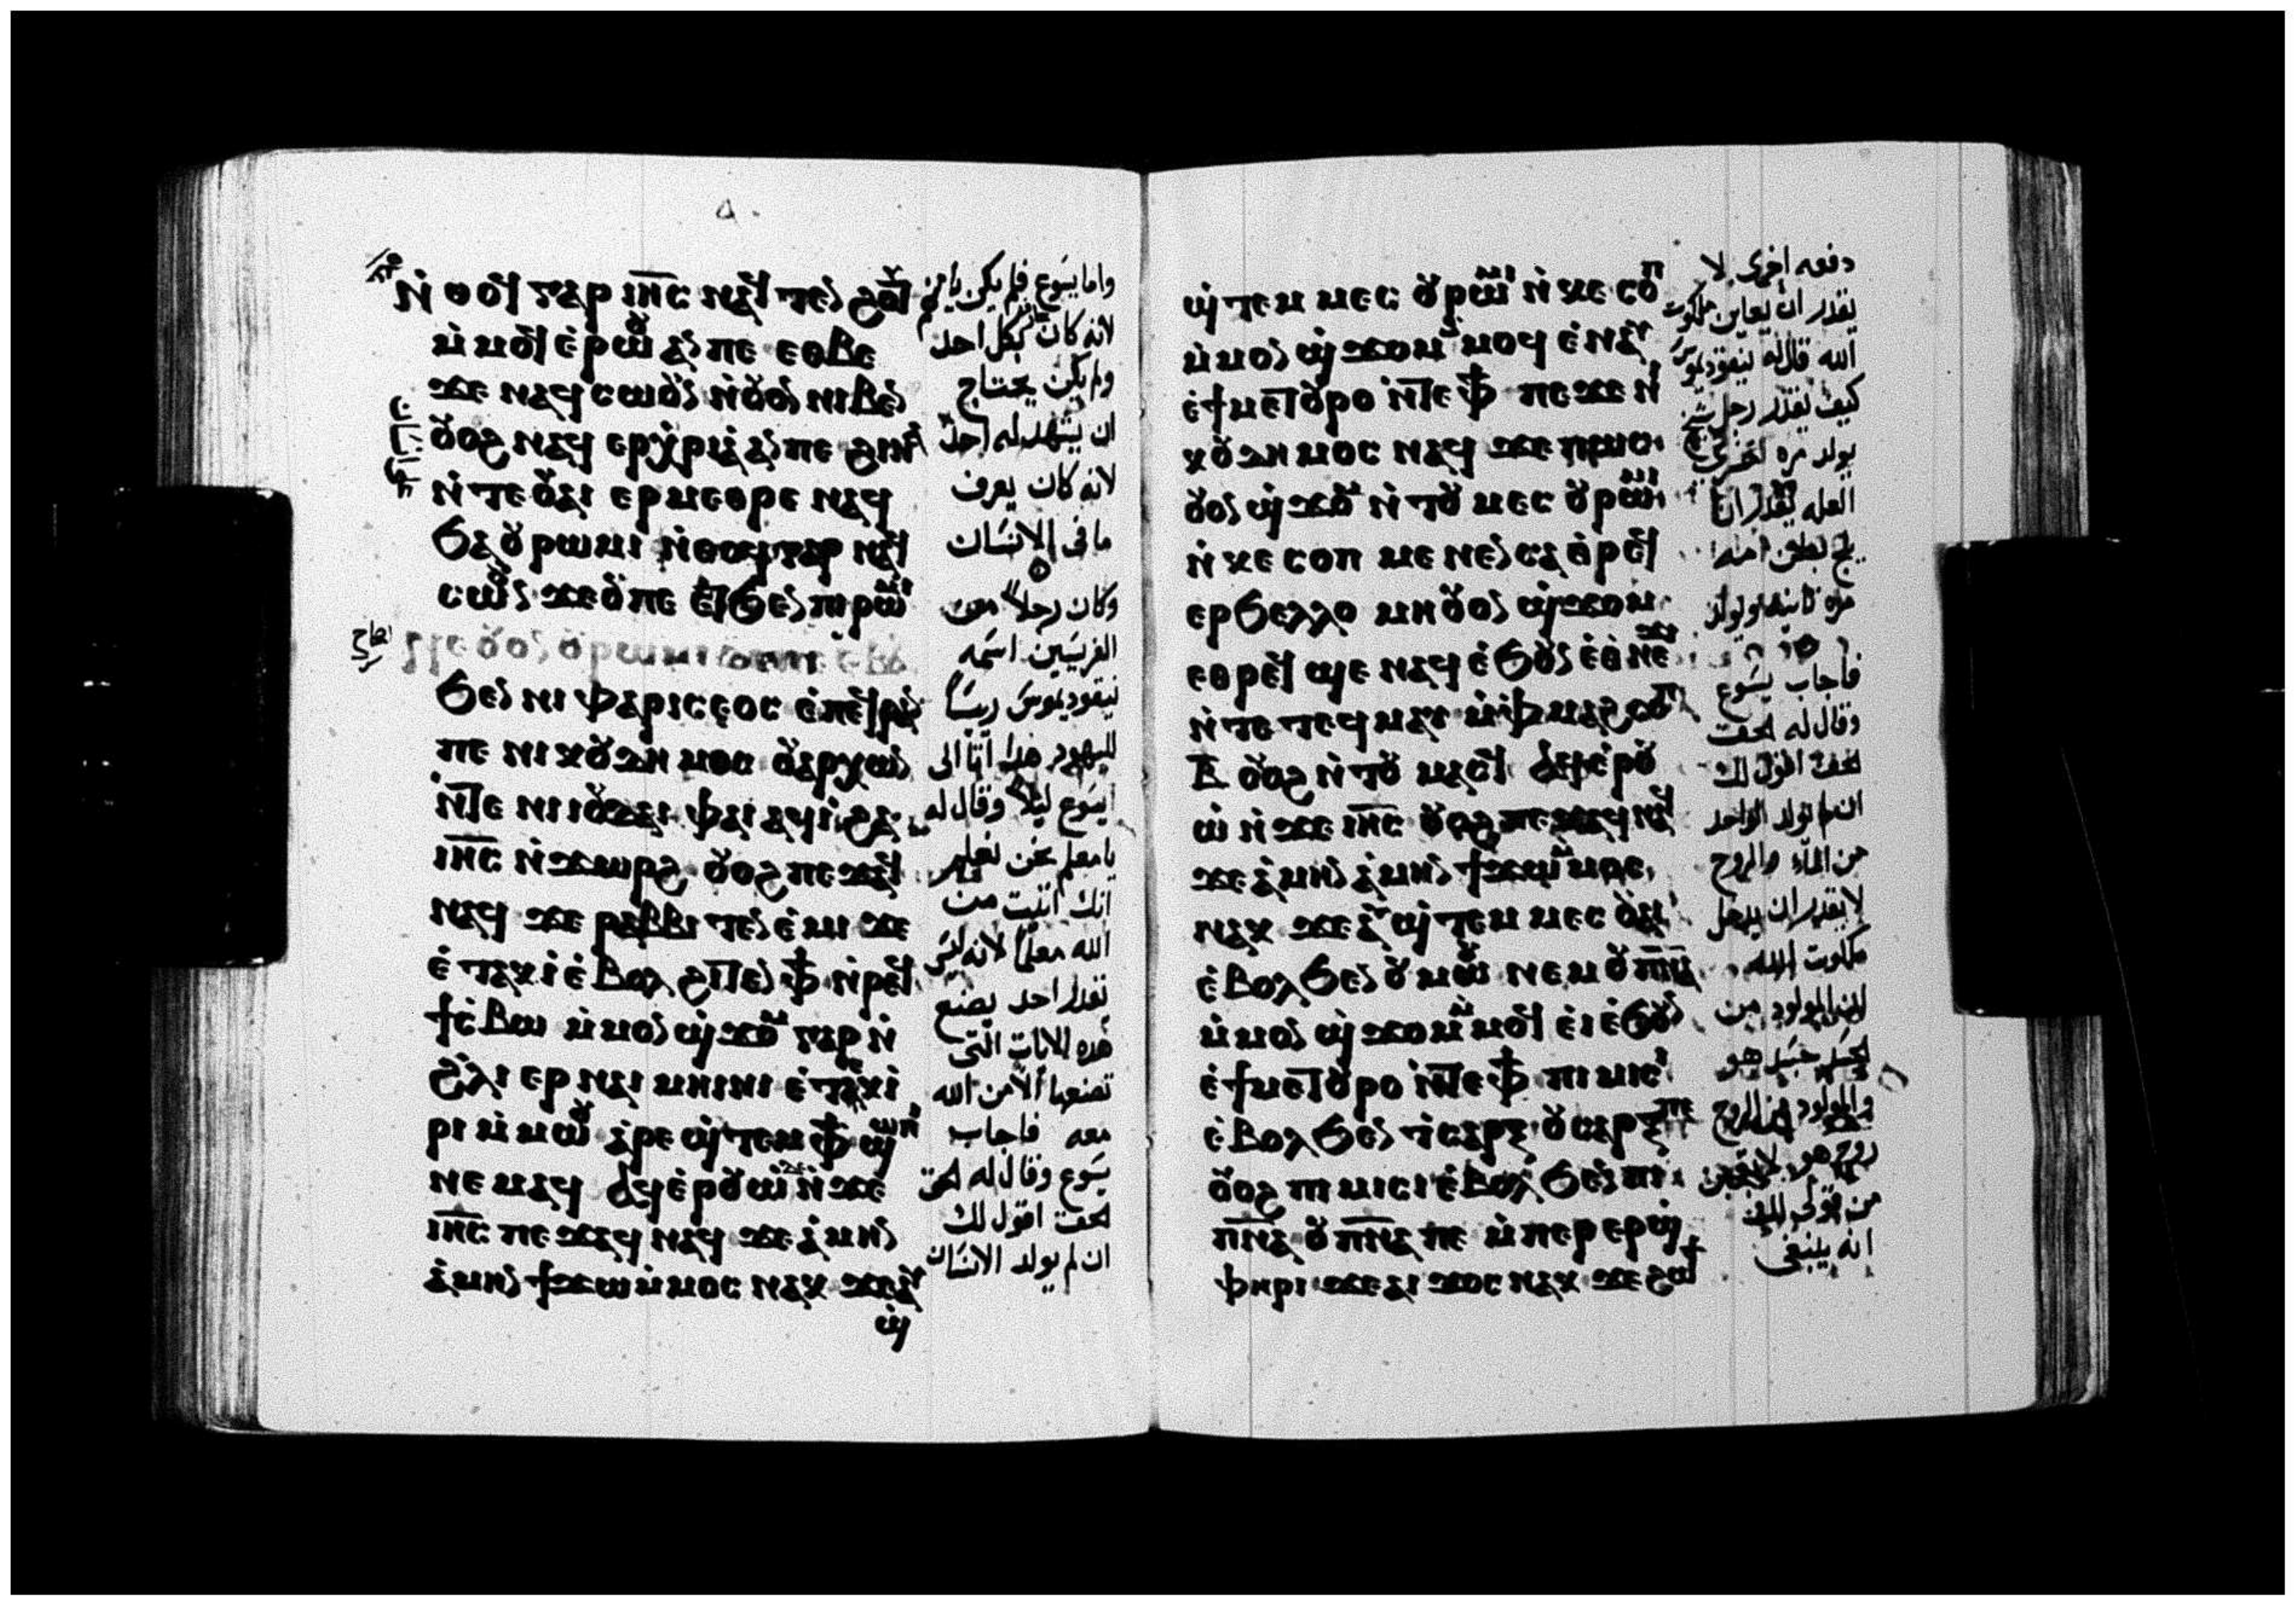 ⲛ̀ⲑⲟϥ ⲅⲁⲣ ⲓⲏ̅ⲥ̅ ⲛⲁϥ ⲧⲉⲛϩⲟⲩⲧ
ⲙ̀ⲙⲟϥ ⲉ̀ⲣⲱⲟⲩ ⲁⲛ ⲡⲉ ⲉⲑⲃⲉ
ϫⲉ ⲛⲁϥⲥⲱⲟⲩⲛ ⲛ̀ⲟⲩⲟⲛ ⲛⲓⲃⲉⲛ
ⲟⲩⲟϩ ⲛⲁϥ ⲉⲣⲭⲣⲓⲁ ⲁⲛ ⲡⲉ ϩⲓⲛⲁ
ⲛ̀ⲧⲉ ⲟⲩⲁⲓ ⲉⲣⲙⲉⲑⲣⲉ ⲛⲁϥ
ϧⲁ ⲟⲩⲣⲱⲙⲓ ⲛ̀ⲑⲟϥ ⲅⲁⲣ ⲛⲁϥ
ⲥⲱⲟⲩⲛ ϫⲉ ⲟⲩ ⲡⲉ ⲉⲧϧⲉⲛ ⲡⲓⲣⲱⲙⲓ
ϧⲉⲛ ⲛⲓ ⲫⲁⲣⲓⲥⲉⲟⲥ ⲉ̀ⲡⲉϥⲣⲁⲛ
ⲡⲉ ⲛⲓⲕⲟⲩⲇⲏⲙⲟⲥ ⲟⲩⲁⲣⲭⲱⲛ
ⲛ̀ⲧⲉ ⲛⲓⲓⲟⲩⲇⲁⲓ ⲫⲁⲓ ⲁϥⲓ̀ ϩⲁ
ⲓⲏ̅ⲥ̅ ⲛ̀ϫⲱⲣϩ ⲟⲩⲟϩ ⲡⲉϫⲁϥ
ⲛⲁϥ ϫⲉ ⲣⲁⲃⲃⲓ ⲧⲉⲛⲉ̀ⲙⲓ ϫⲉ
ⲉ̀ⲧⲁⲕⲓ̀ ⲉ̀ⲃⲟⲗ ϩⲓⲧⲉⲛ ⲫϯ ⲛ̀ⲣⲉϥ
ϯⲥ̀ⲃⲱ ⲙ̀ⲙⲟⲛ ϣ̀ϫⲟⲙ ⲅⲁⲣ ⲛ̀
ϩⲗⲓ ⲉⲣ ⲛⲁⲓ ⲙⲏⲓⲛⲓ ⲉ̀ⲧⲉⲕⲓ̀
ⲣⲓ ⲙ̀ⲙⲱⲟⲩ ⲁⲣⲉ ϣ̀ⲧⲉⲙ ⲫϯ ϣⲱⲡⲓ
ⲛⲉⲙⲁϥ ⲁϥⲉⲣⲟⲩⲱ̀ ⲛ̀ϫⲉ
ⲓⲏ̅ⲥ̅ ⲡⲉϫⲁϥ ⲛⲁϥ ϫⲉ ⲁ̀ⲙⲏⲛ
ⲁ̀ⲙⲏⲛ ϯϫⲱ ⲙ̀ⲙⲟⲥ ⲛⲁⲕ ϫⲉ ⲁⲩ
ϣ̀
واما يسوع فلم يكن يامن
لانه كان بكل احد
ولم يكن يحتاج
ان يشهد له احد
لانه كان يعرف
ما في الانسان
وكان رجلا من
الفريسيين اسمه
نيقوديموس ريسا
لليهود هذا اتا الى
ايسوع ليلا وقال له
يا معلم نحن نعلم
انك اتيت من
الله معلما لانه ليس
يقدر احد يصنع
هذه الايات التى
تصنعها الا من الله
معه فاجاب
يسوع وقال له الحق
الحق اقول لك
ان لم يولد الانسان
ϣ̀ⲧⲉⲙ ⲙⲉⲥ ⲟⲩⲣⲱⲙⲓ ⲛ̀ⲕⲉ ⲥⲟⲡ
ⲙ̀ⲙⲟⲛ ϣ̀ϫⲟⲙ ⲙ̀ⲙⲟϥ ⲉ̀ⲛⲁⲩ
ⲉ̀ϯⲙⲉⲧⲟⲩⲣⲟ ⲛ̀ⲧⲉ ⲫϯ ⲡⲉϫⲉ ⲛⲓ
ⲕⲟⲩⲇⲏⲙⲟⲥ ⲛⲁϥ ϫⲉ ⲡⲱⲥ
ⲟⲩⲟⲛ ϣ̀ϫⲟⲙ ⲛ̀ⲧⲟⲩ ⲙⲉⲥ ⲟⲩⲣⲱⲙⲓ
ⲛ̀ⲕⲉ ⲥⲟⲡ ⲙⲉⲛⲉⲛⲥⲁ ⲑ̀ⲣⲉϥ
ⲉⲣϧⲉⲗⲗⲟ ⲙⲏ ⲟⲩⲟⲛ ϣ̀ϫⲟⲙ
ⲉⲑⲣⲉϥ ϣⲉ ⲛⲁϥ ⲉ̀ϧⲟⲩⲛ ⲉ̀ⲑⲛⲉϫⲓ
ⲛ̀ⲧⲉ ⲧⲉϥⲙⲁⲩ ⲙ̀ⲫⲙⲁϩ ⲥⲟⲡ
ⲃ̅ ⲟⲩⲟϩ ⲛ̀ⲧⲟⲩ ⲙⲁⲥϥ ⲁϥⲉ̀ⲣⲟⲩ
ⲱ̀ ⲛ̀ϫⲉ ⲓⲏ̅ⲥ̅ ⲟⲩⲟϩ ⲡⲉϫⲁϥ ⲛⲁϥ
ϫⲉ ⲁ̀ⲙⲏⲛ ⲁ̀ⲙⲏⲛ ϯϫⲱ ⲙ̀ⲙⲟⲥ
ⲛⲁⲕ ϫⲉ ⲁⲩϣ̀ⲧⲉⲙ ⲙⲉⲥ ⲟⲩⲁⲓ
ⲉ̀ⲃⲟⲗ ϧⲉⲛ ⲟⲩⲙⲱⲟⲩ ⲛⲉⲙ ⲟⲩⲡⲛ̅ⲁ̅
ⲙ̀ⲙⲟⲛ ϣ̀ϫⲟⲙ ⲙ̀ⲙⲟϥ ⲉ̀ⲓ ⲉ̀ϧⲟⲩⲛ
ⲉ̀ϯⲙⲉⲧⲟⲩⲣⲟ ⲛ̀ⲧⲉ ⲫϯ ⲡⲓⲙⲓⲥⲓ
ⲉ̀ⲃⲟⲗ ϧⲉⲛ ⲧ̀ⲥⲁⲣⲝ ⲟⲩⲥⲁⲣⲝ ⲡⲉ
ⲟⲩⲟϩ ⲡⲓⲙⲓⲥⲓ ⲉ̀ⲃⲟⲗ ϧⲉⲛ ⲡⲓ
ⲡⲛ̅ⲁ̅ ⲟⲩⲡⲛ̅ⲁ̅ ⲡⲉ ⲙ̀ⲡⲉⲣ ⲉⲣϣ̀
ⲫⲏⲣⲓ ϫⲉ ⲁⲓϫⲟⲥ ⲛⲁⲕ ϫⲉ ϩⲱϯ
دفعه اخرى لا
يقدر ان يعاين ملكوت
الله قال له نيقوديموس
كيف يقدر رجل شيخ
يولد مره اخرى
العله يقدر ان
يلج بطن امه
مره ثانيه ويولد
فاجاب يسوع
وقال له الحق
الحق اقول لك
ان لم يولد الواحد
من الماء والروح
لا يقدر ان يدخل
ملكوت الله
لان المولود من
الجسد جسد هو
والمولود من الروح
روح هو لا تعجبن
من قولى لك
انه ينبغى